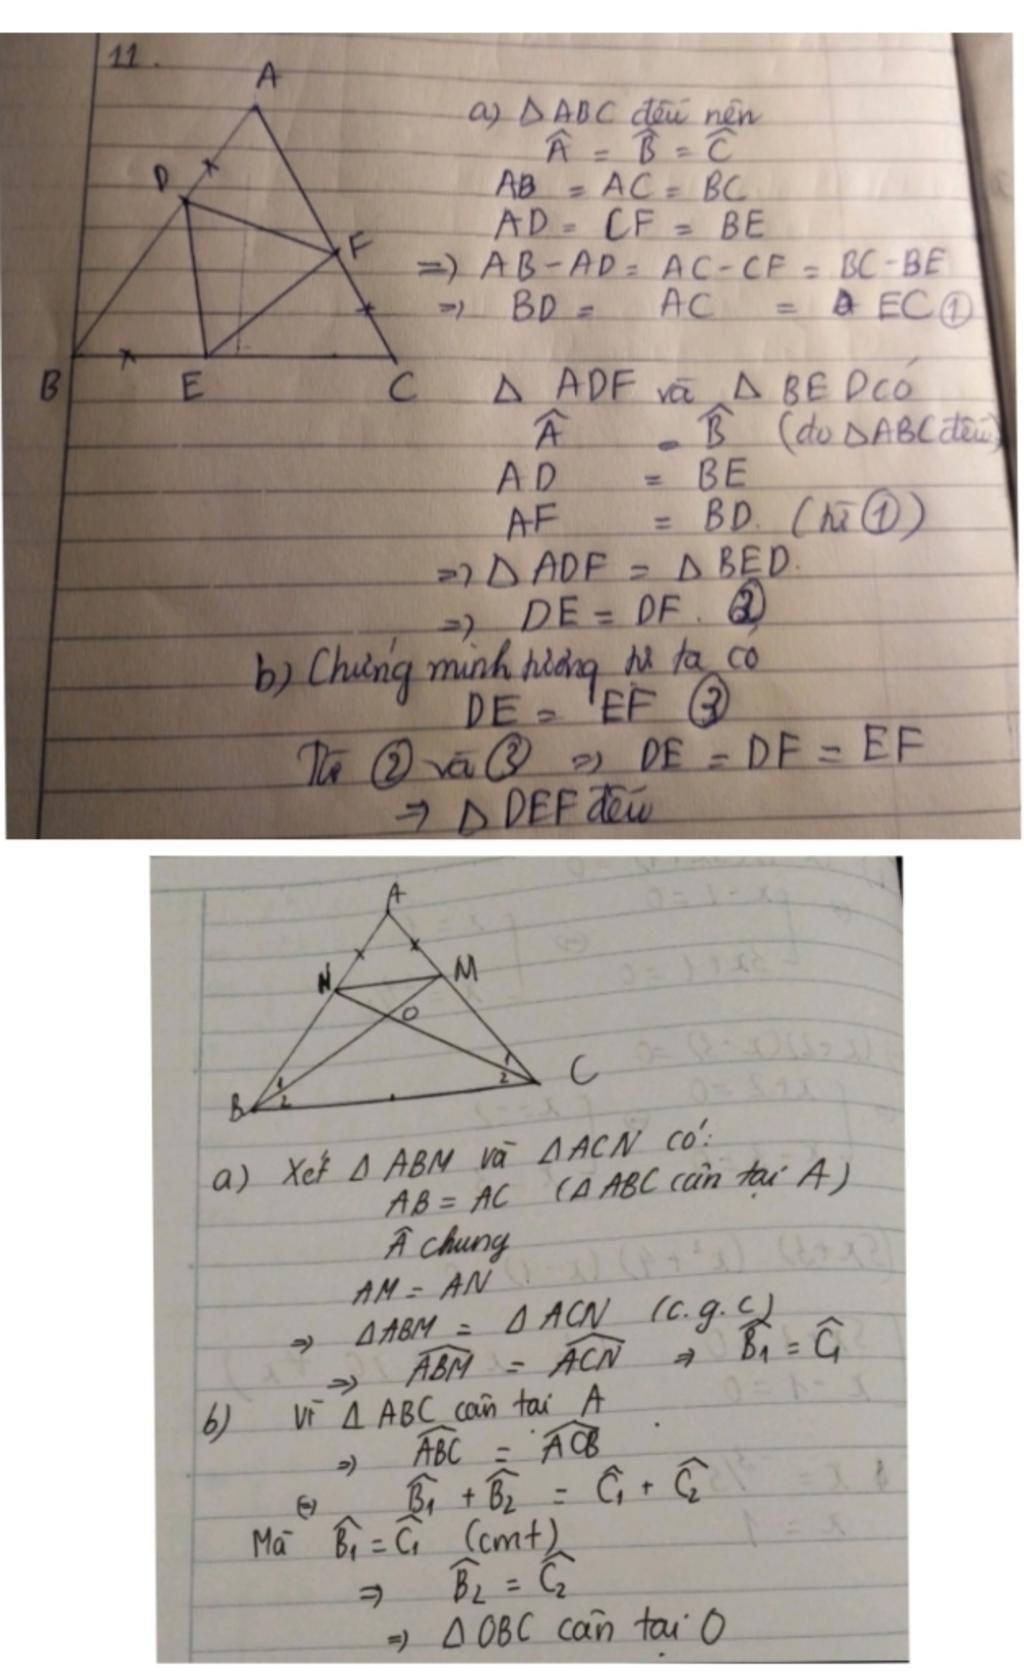 11.
A
D
F
B E C
a) Δ ABC đều nên
Â = B̂ = Ĉ
AB = AC = BC
AD = CF = BE
=> AB - AD = AC - CF = BC - BE
=> BD = AC = EC ①
Δ ADF và Δ BED có
Â = B̂ (do Δ ABC đều)
AD = BE
AF = BD. (từ ①)
=> Δ ADF = Δ BED.
=> DE = DF. ②
b) Chứng minh tương tự ta có
DE = EF ③
Từ ② và ③ => DE = DF = EF
=> Δ DEF đều
A
N M
O
1 1
2 2
B C
a) Xét Δ ABM và Δ ACN có:
AB = AC (Δ ABC cân tại A)
Â chung
AM = AN
=> Δ ABM = Δ ACN (c.g.c)
=> \widehat{ABM} = \widehat{ACN} => B̂₁ = Ĉ₁
b) Vì Δ ABC cân tại A
=> \widehat{ABC} = \widehat{ACB}
(=) B̂₁ + B̂₂ = Ĉ₁ + Ĉ₂
Mà B̂₁ = Ĉ₁ (cmt)
=> B̂₂ = Ĉ₂
=> Δ OBC cân tại O